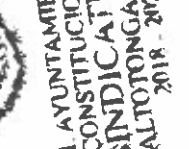 AYUNTAMIE
CONSTITUCIO
SINDICAT
ALTOTONGA
2018 - 20